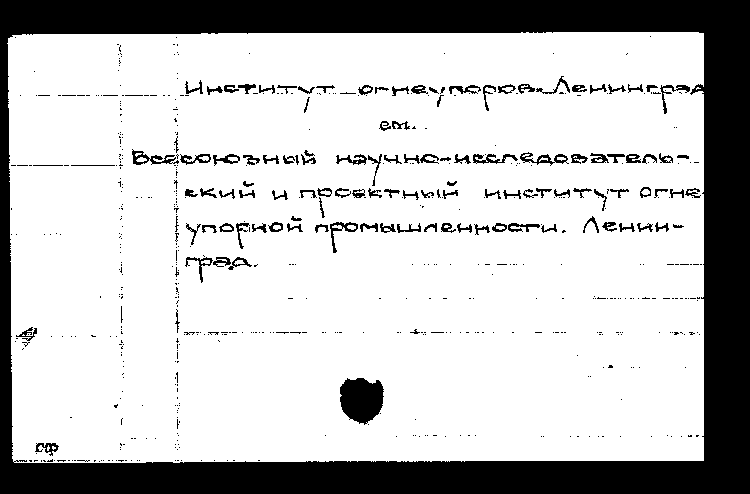 Институт огнеупоров. Ленинград
см.
Всесоюзный научно-исследователь-
ский и проектный институт огне-
упорной промышленности. Ленин-
град.
рф